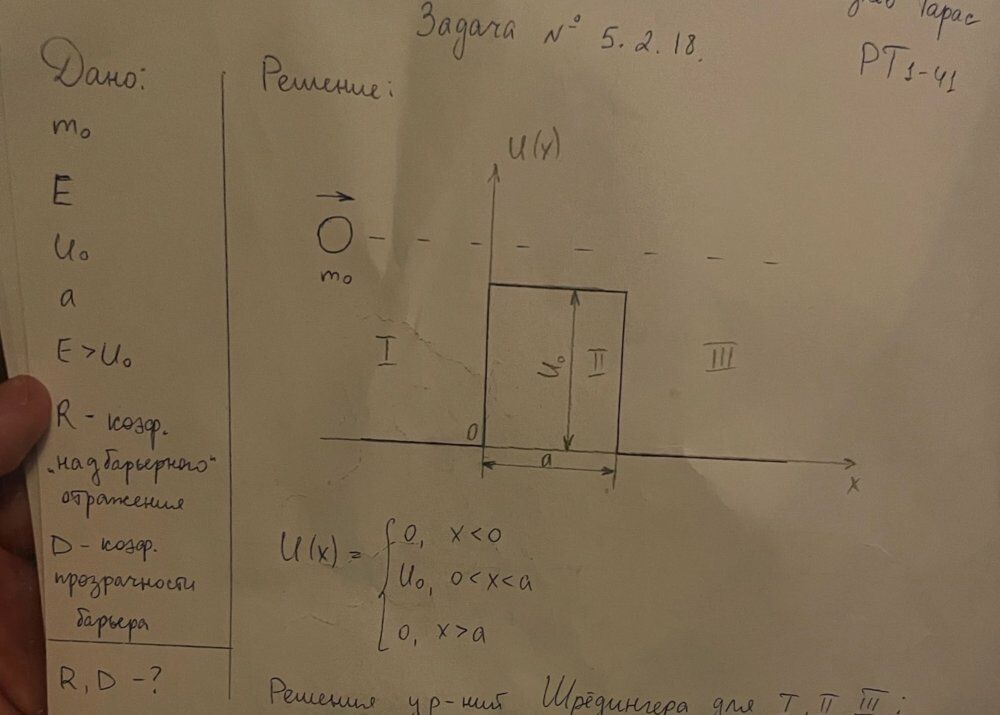 Задача № 5.2.18.
Тарас
РТ1-41
Дано:
m₀
E
U₀
a
E > U₀
R - коэф.
"надбарьерного"
отражения
D - коэф.
прозрачности
барьера
R, D - ?
Решение:
U(x)
m₀
I
U₀
II
III
0
a
x
U(x) = { 0, x < 0
U₀, 0 < x < a
0, x > a
Решения ур-ний Шрёдингера для I, II III: